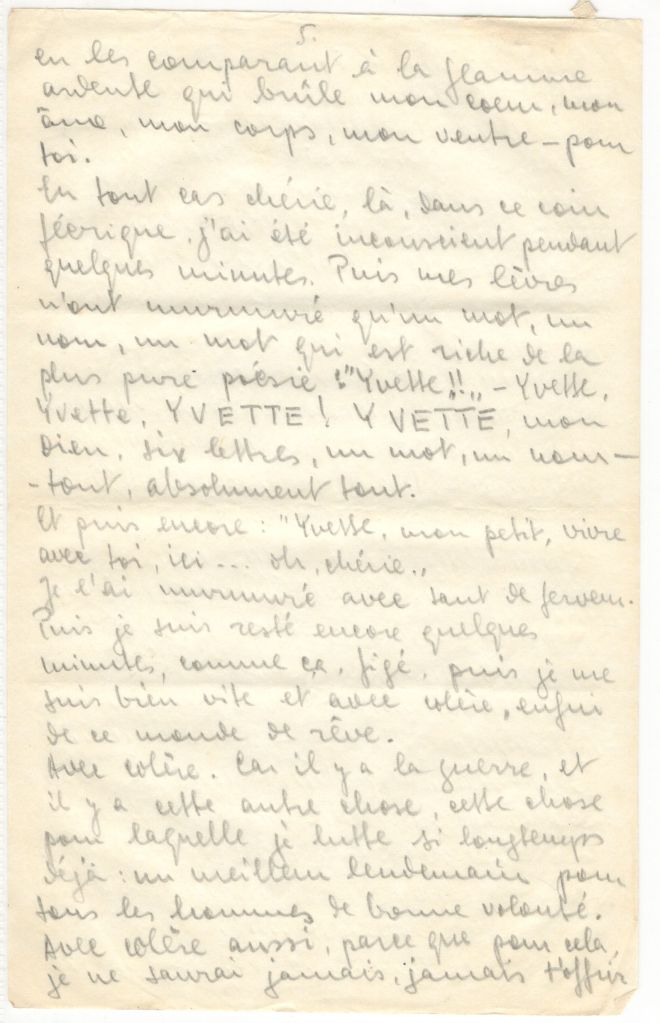 5.
en les comparant à la flamme
ardente qui brûle mon coeur, mon
âme, mon corps, mon ventre – pour
toi.
En tout cas chérie, là, dans ce coin
féérique, j'ai été inconscient pendant
quelques minutes. Puis mes lèvres
n'ont murmuré qu'un mot, un
nom, un mot qui est riche de la
plus pure poésie : "Yvette!!„ – Yvette,
Yvette, YVETTE! YVETTE, mon
Dieu, six lettres, un mot, un nom –
- tout, absolument tout.
Et puis encore : "Yvette, mon petit, vivre
avec toi, ici ... oh, chérie„
Je l'ai murmuré avec tant de ferveur.
Puis je suis resté encore quelques
minutes, comme ça, figé, puis je me
suis bien vite et avec colère, enfui
de ce monde de rêve.
Avec colère. Car il y a la guerre, et
il y a cette autre chose, cette chose
pour laquelle je lutte si longtemps
déjà : un meilleur lendemain pour
tous les hommes de bonne volonté.
Avec colère aussi, parce que pour cela,
je ne saurai jamais, jamais t'offrir